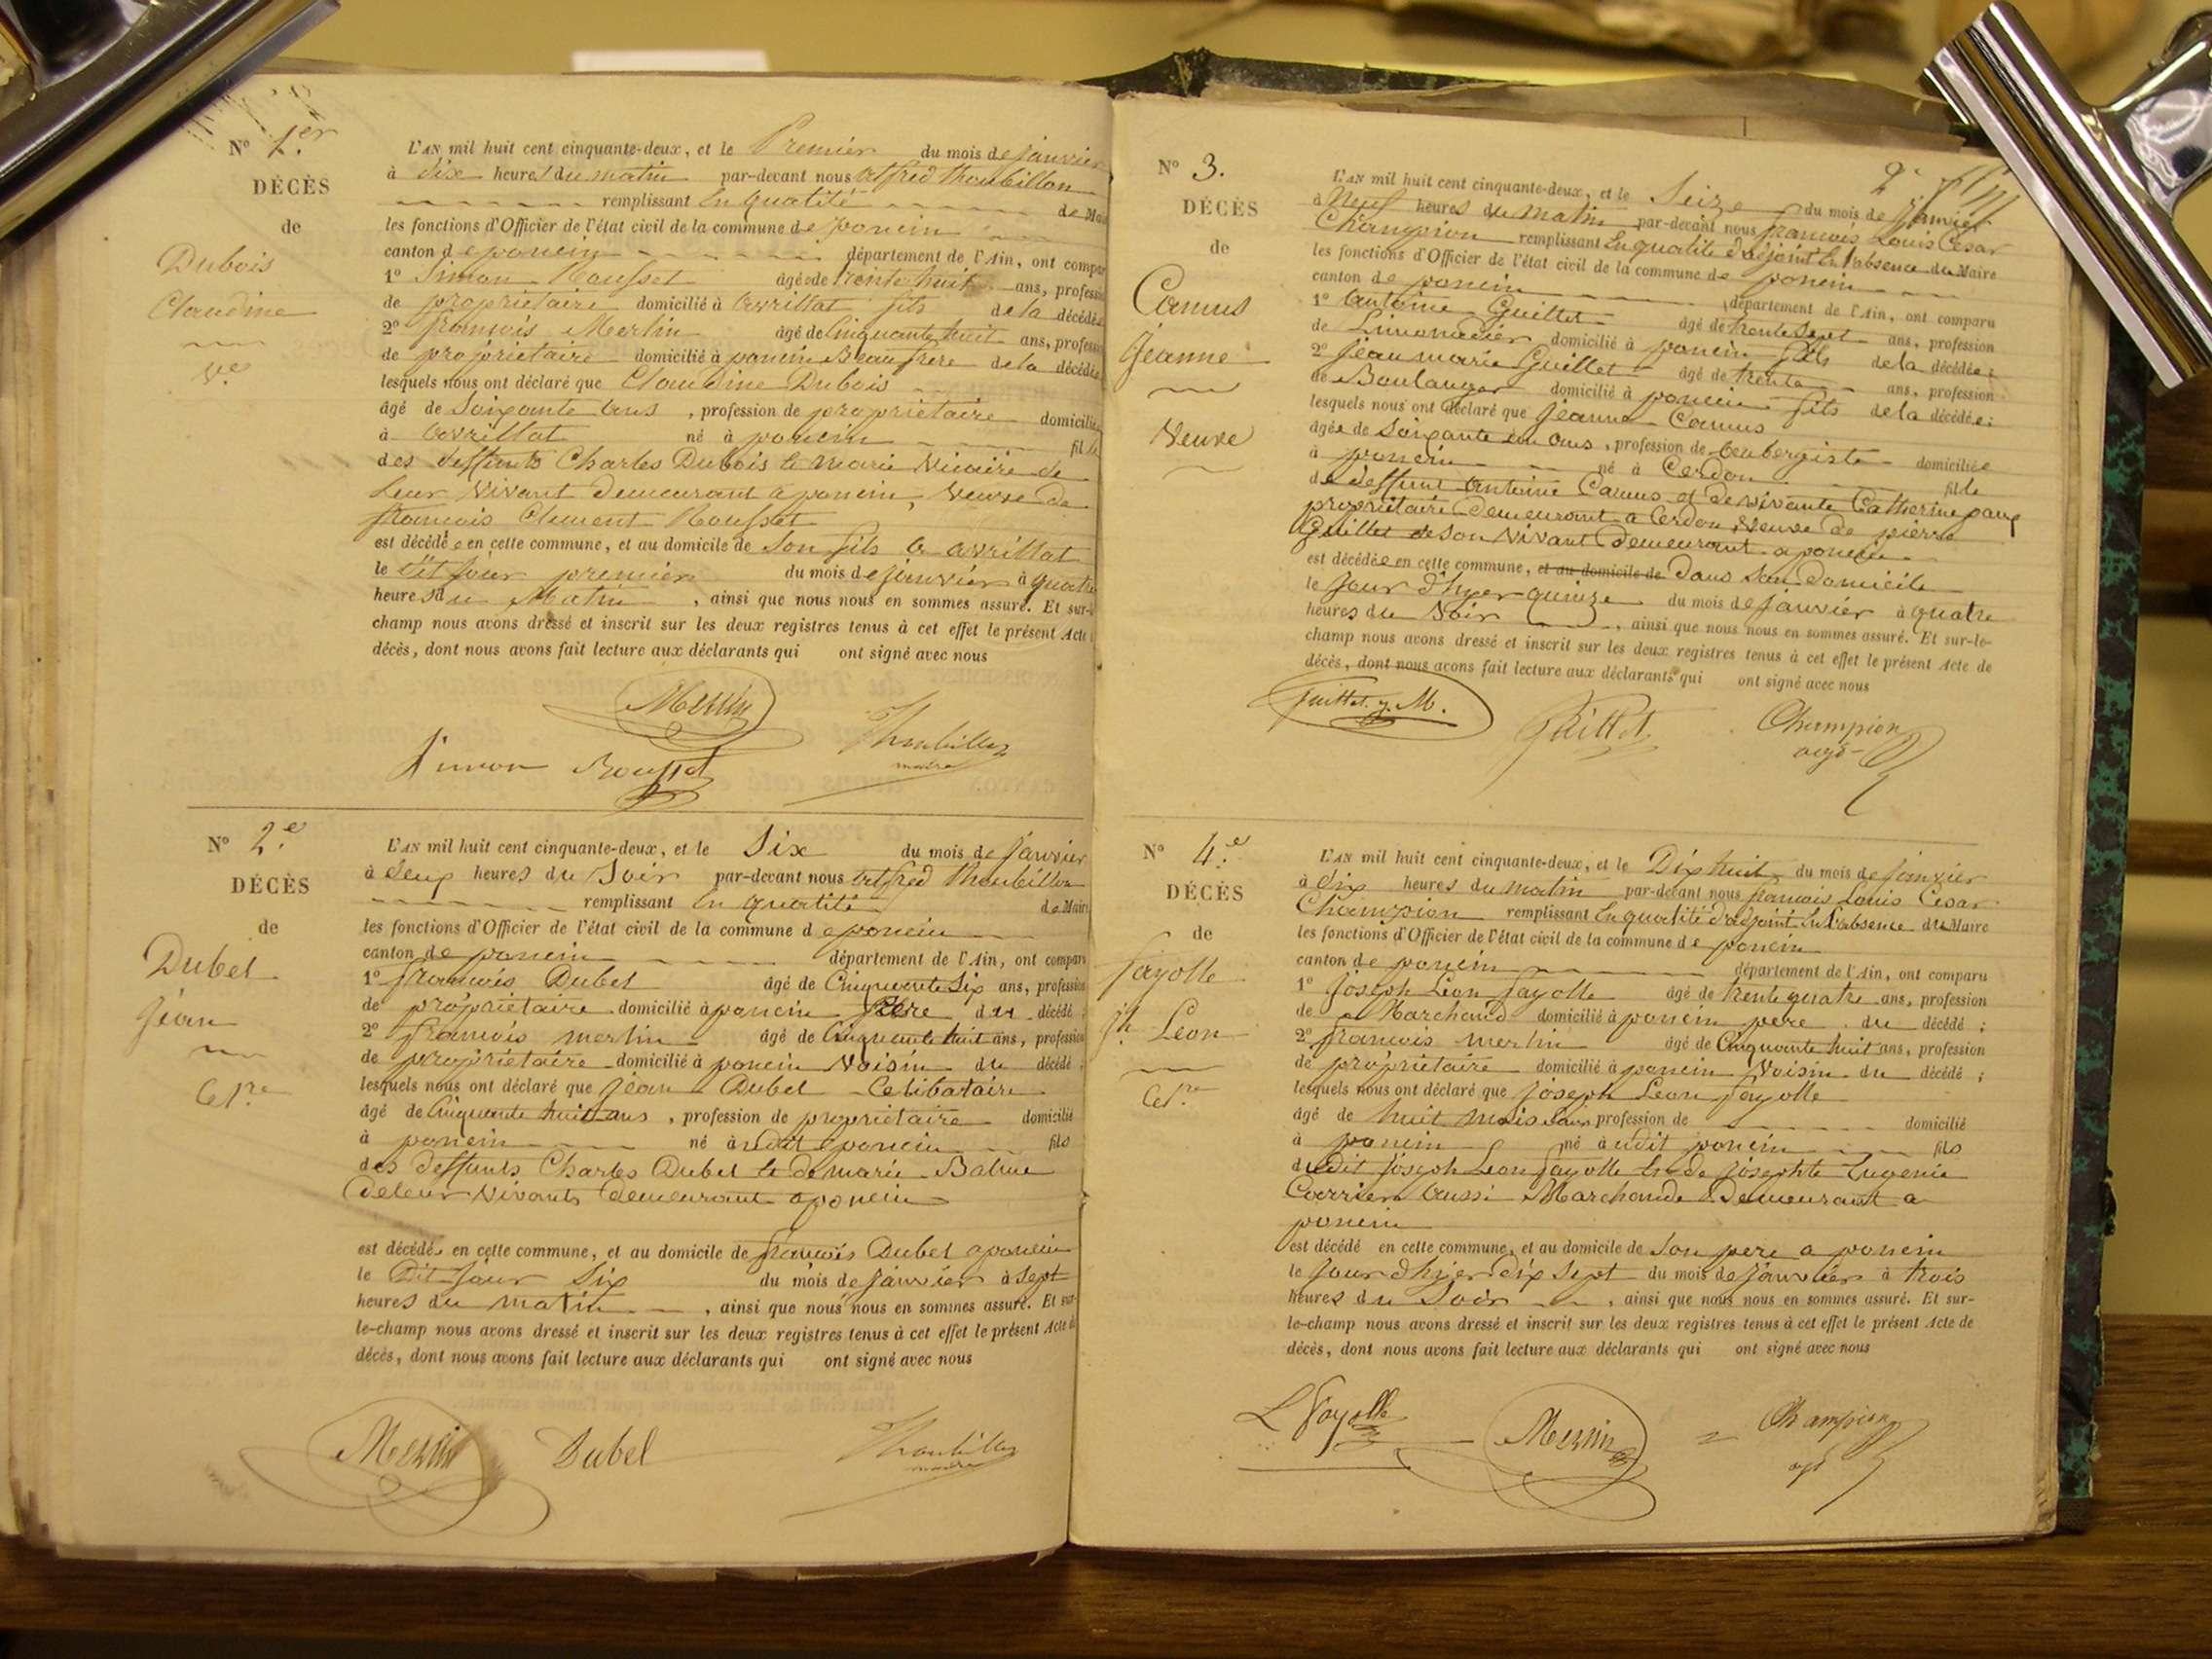 N° 1.er
DÉCÈS
de
Dubois
Claudine
Ve
L'AN mil huit cent cinquante-deux, et le Premier du mois de janvier
à dix heures du matin par-devant nous alfred thoubillon
remplissant En qualité de Mai
les fonctions d'Officier de l'état civil de la commune de poncin
canton de poncin département de l'Ain, ont compar
1° Simon Rousset âgé de trente huit ans, professi
de propriétaire domicilié à avrillat fils de la décédée
2° françois Merlin âgé de Cinquante huit ans, professi
de propriétaire domicilié à poncin Beaufrere de la décédée
lesquels nous ont déclaré que Claudine Dubois
âgé de Soixante ans, profession de propriétaire domicilié
à avrillat né à poncin fille
des deffunts Charles Dubois et marie Vicaire de
leur Vivant demeurant a poncin, Veuve de
françois Clement Rousset
est décédée en cette commune, et au domicile de Son fils a avrillat
le dit jour premier du mois de janvier à quatre
heures du Matin, ainsi que nous nous en sommes assuré. Et sur-le
champ nous avons dressé et inscrit sur les deux registres tenus à cet effet le présent Acte
décès, dont nous avons fait lecture aux déclarants qui ont signé avec nous
Merlin
Simon Rousset
Thoubillon
maire
N° 2.e
DÉCÈS
de
Dubel
Jean
Cel.re
L'AN mil huit cent cinquante-deux, et le Six du mois de janvier
à deux heures du Soir par-devant nous alfred thoubillon
remplissant En qualité de Maire
les fonctions d'Officier de l'état civil de la commune de poncin
canton de poncin département de l'Ain, ont comparu
1° françois Dubel âgé de Cinquante Six ans, profession
de propriétaire domicilié à poncin frere du décédé ;
2° françois merlin âgé de Cinquante huit ans, profession
de propriétaire domicilié à poncin Voisin du décédé ;
lesquels nous ont déclaré que Jean Dubel Celibataire
âgé de Cinquante huit ans, profession de propriétaire domicilié
à poncin né audit poncin fils
des deffunts Charles Dubel et de marie Balme
de leur Vivants demeurant a poncin
est décédé en cette commune, et au domicile de françois Dubel a poncin
le Dit jour Six du mois de janvier à Sept
heures du matin, ainsi que nous nous en sommes assuré. Et sur-
le-champ nous avons dressé et inscrit sur les deux registres tenus à cet effet le présent Acte de
décès, dont nous avons fait lecture aux déclarants qui ont signé avec nous
Merlin Dubel Thoubillon
maire
N° 3.
DÉCÈS
de
Camus
Jeanne
Veuve
L'AN mil huit cent cinquante-deux, et le Seize du mois de janvier
à Neuf heures du Matin par-devant nous françois Louis Cesar
Champion remplissant En qualité d'adjoint En l'absence du Maire
les fonctions d'Officier de l'état civil de la commune de poncin
canton de poncin département de l'Ain, ont comparu
1° antoine Guillet âgé de trente Sept ans, profession
de Limonadier domicilié à poncin fils de la décédée ;
2° Jean marie Guillet âgé de trente ans, profession
de Boulanger domicilié à poncin fils de la décédée ;
lesquels nous ont déclaré que Jeanne Camus
âgée de Soixante un ans, profession de aubergiste domiciliée
à poncin né à Cerdon fille
de deffunt antoine Camus et de vivante Catherine
propriétaire demeurant a Cerdon Veuve de pierre
Guillet de son Vivant demeurant a poncin
est décédée en cette commune, et au domicile de dans Son domicile
le jour d'hyer quinze du mois de janvier à quatre
heures du Soir, ainsi que nous nous en sommes assuré. Et sur-le-
champ nous avons dressé et inscrit sur les deux registres tenus à cet effet le présent Acte de
décès, dont nous avons fait lecture aux déclarants qui ont signé avec nous
Guillet. J. M. Guillet. Champion
N° 4.e
DÉCÈS
de
fayolle
jh Leon
Cel.re
L'AN mil huit cent cinquante-deux, et le Dix huit du mois de janvier
à dix heures du matin par-devant nous françois Louis Cesar
Champion remplissant En qualité d'adjoint En l'absence du Maire
les fonctions d'Officier de l'état civil de la commune de poncin
canton de poncin département de l'Ain, ont comparu
1° Joseph Leon fayolle âgé de trente quatre ans, profession
de Marchand domicilié à poncin pere du décédé ;
2° françois merlin âgé de Cinquante huit ans, profession
de propriétaire domicilié à poncin Voisin du décédé ;
lesquels nous ont déclaré que Joseph Leon fayolle
âgé de huit mois profession de domicilié
à poncin né audit poncin fils
dudit Joseph Leon fayolle Et de Josephte Eugenie
Carrier aussi Marchande Demeurant a
poncin
est décédé en cette commune, et au domicile de Son pere a poncin
le jour d'hyer dix Sept du mois de janvier à trois
heures du Soir, ainsi que nous nous en sommes assuré. Et sur-
le-champ nous avons dressé et inscrit sur les deux registres tenus à cet effet le présent Acte de
décès, dont nous avons fait lecture aux déclarants qui ont signé avec nous
L Fayolle Merlin Champion